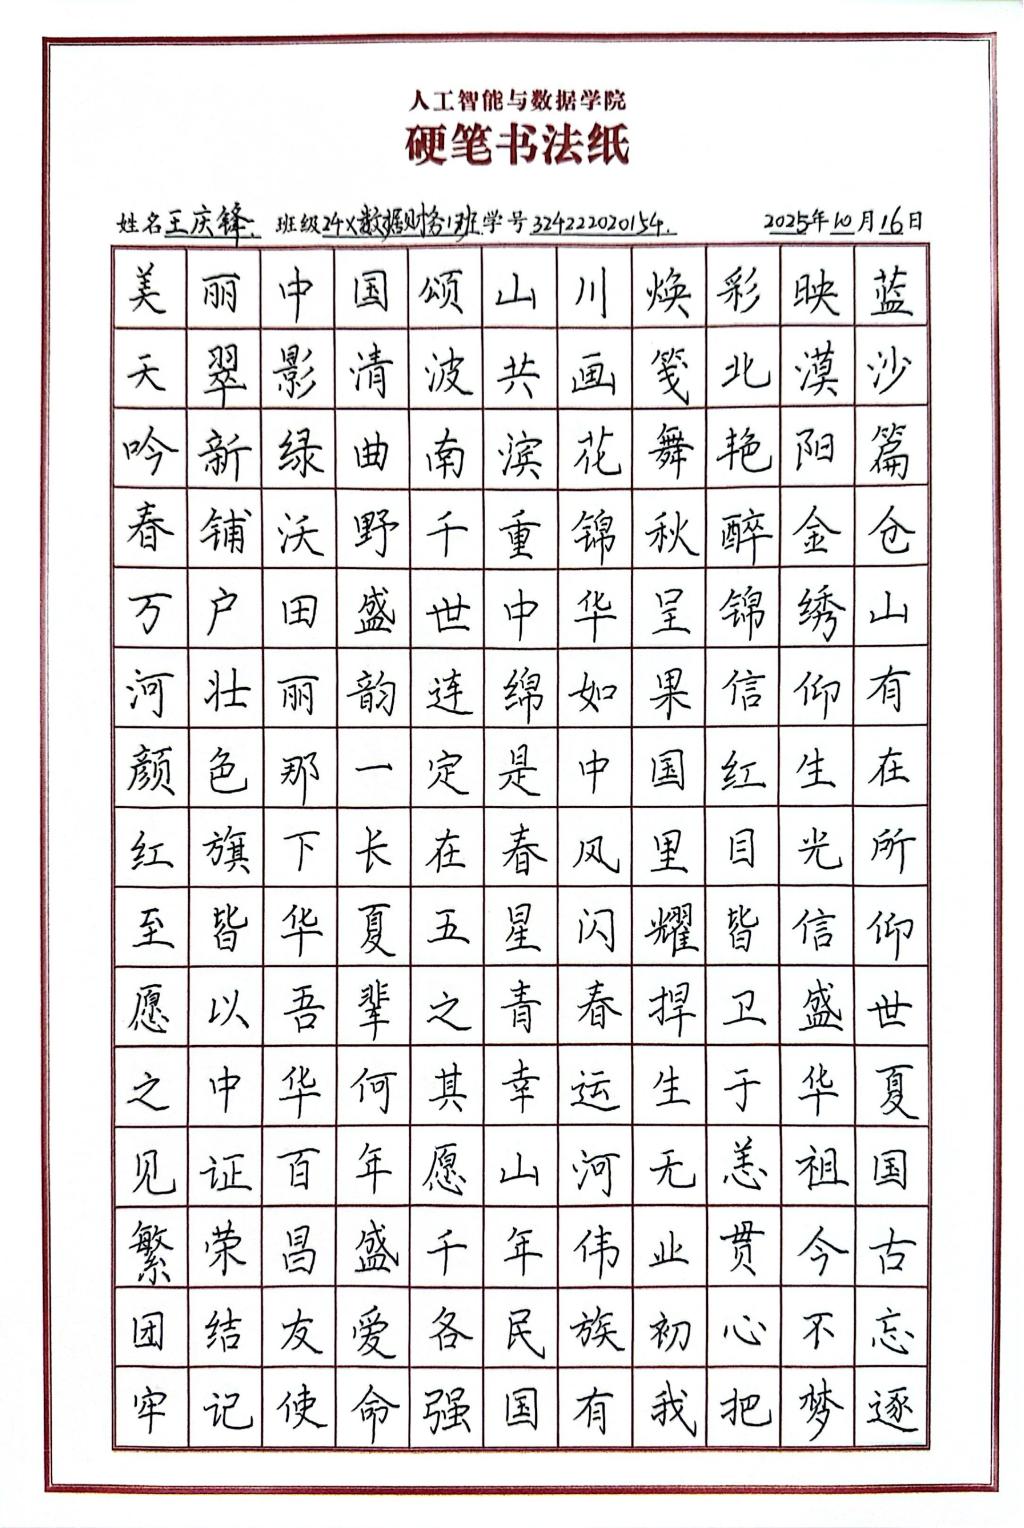 人工智能与数据学院
硬笔书法纸
姓名王庆锋. 班级24X数据财务1班学号324222020154. 2025年10月16日
美丽中国颂山川焕彩映蓝
天翠影清波共画笺北漠沙
吟新绿曲南滨花舞艳阳篇
春铺沃野千重锦秋醉金仓
万户田盛世中华呈锦绣山
河壮丽韵连绵如果信仰有
颜色那一定是中国红生在
红旗下长在春风里目光所
至皆华夏五星闪耀皆信仰
愿以吾辈之青春捍卫盛世
之中华何其幸运生于华夏
见证百年愿山河无恙祖国
繁荣昌盛千年伟业贯今古
团结友爱各民族初心不忘
牢记使命强国有我把梦逐